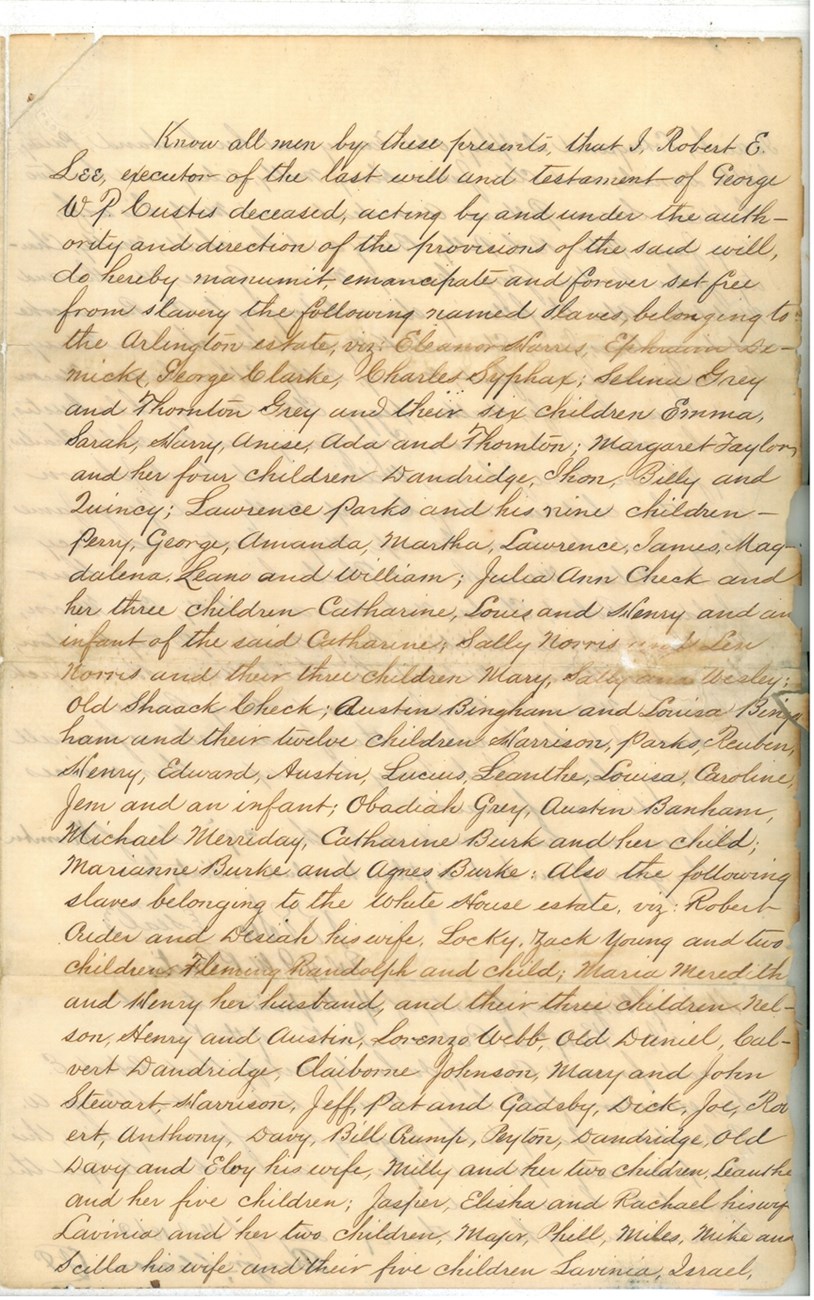 Know all men by these presents, that I, Robert E.
Lee, executor of the last will and testament of George
W P. Custis deceased, acting by and under the auth-
ority and direction of the provisions of the said will,
do hereby manumit, emancipate and forever set free
from slavery the following named slaves, belonging to
the Arlington estate, viz: Eleanor Harris, Ephraim De-
micks, George Clarke, Charles Syphax; Selina Grey
and Thornton Grey and their six children Emma,
Sarah, Harry, Anise, Ada and Thornton; Margaret Taylor,
and her four children Dandridge, Jhon, Billy and
Quincy; Lawrence Parks and his nine children -
Perry, George, Amanda, Martha, Lawrence, James, Mag-
dalena, Leano and William; Julia Ann Check and
her three children Catharine, Louis and Henry and an
infant of the said Catharine; Sally Norris Len
Norris and their three children Mary, Sally and Wesley;
Old Shaack Check; Austin Bingham and Louisa Bing
ham and their twelve children Harrison, Parks, Reuben,
Henry, Edward, Austin, Lucius, Leanthe, Louisa, Caroline,
Jem and an infant; Obadiah Grey, Austin Banham,
Michael Merriday, Catharine Burk and her child;
Marianne Burke and Agnes Burke: Also the following
slaves belonging to the White House estate, viz: Robert
Crider and Desiah his wife, Locky, Zack Young and two
children. Fleming Randolph and child; Maria Meredith
and Henry her husband, and their three children Nel-
son, Henry and Austin, Lorenzo Webb, Old Daniel, Cal-
vert Dandridge, Claiborne Johnson, Mary and John
Stewart, Harrison, Jeff, Pat and Gadsby, Dick, Joe, Rob
ert, Anthony, Davy, Bill Crump, Peyton, Dandridge, Old
Davy and Eloy his wife, Milly and her two children, Leanthe
and her five children; Jasper, Elisha and Rachael his wif
Lavinia and her two children, Major, Phill, Miles, Mike and
Scilla his wife and their five children Lavinia, Israel,